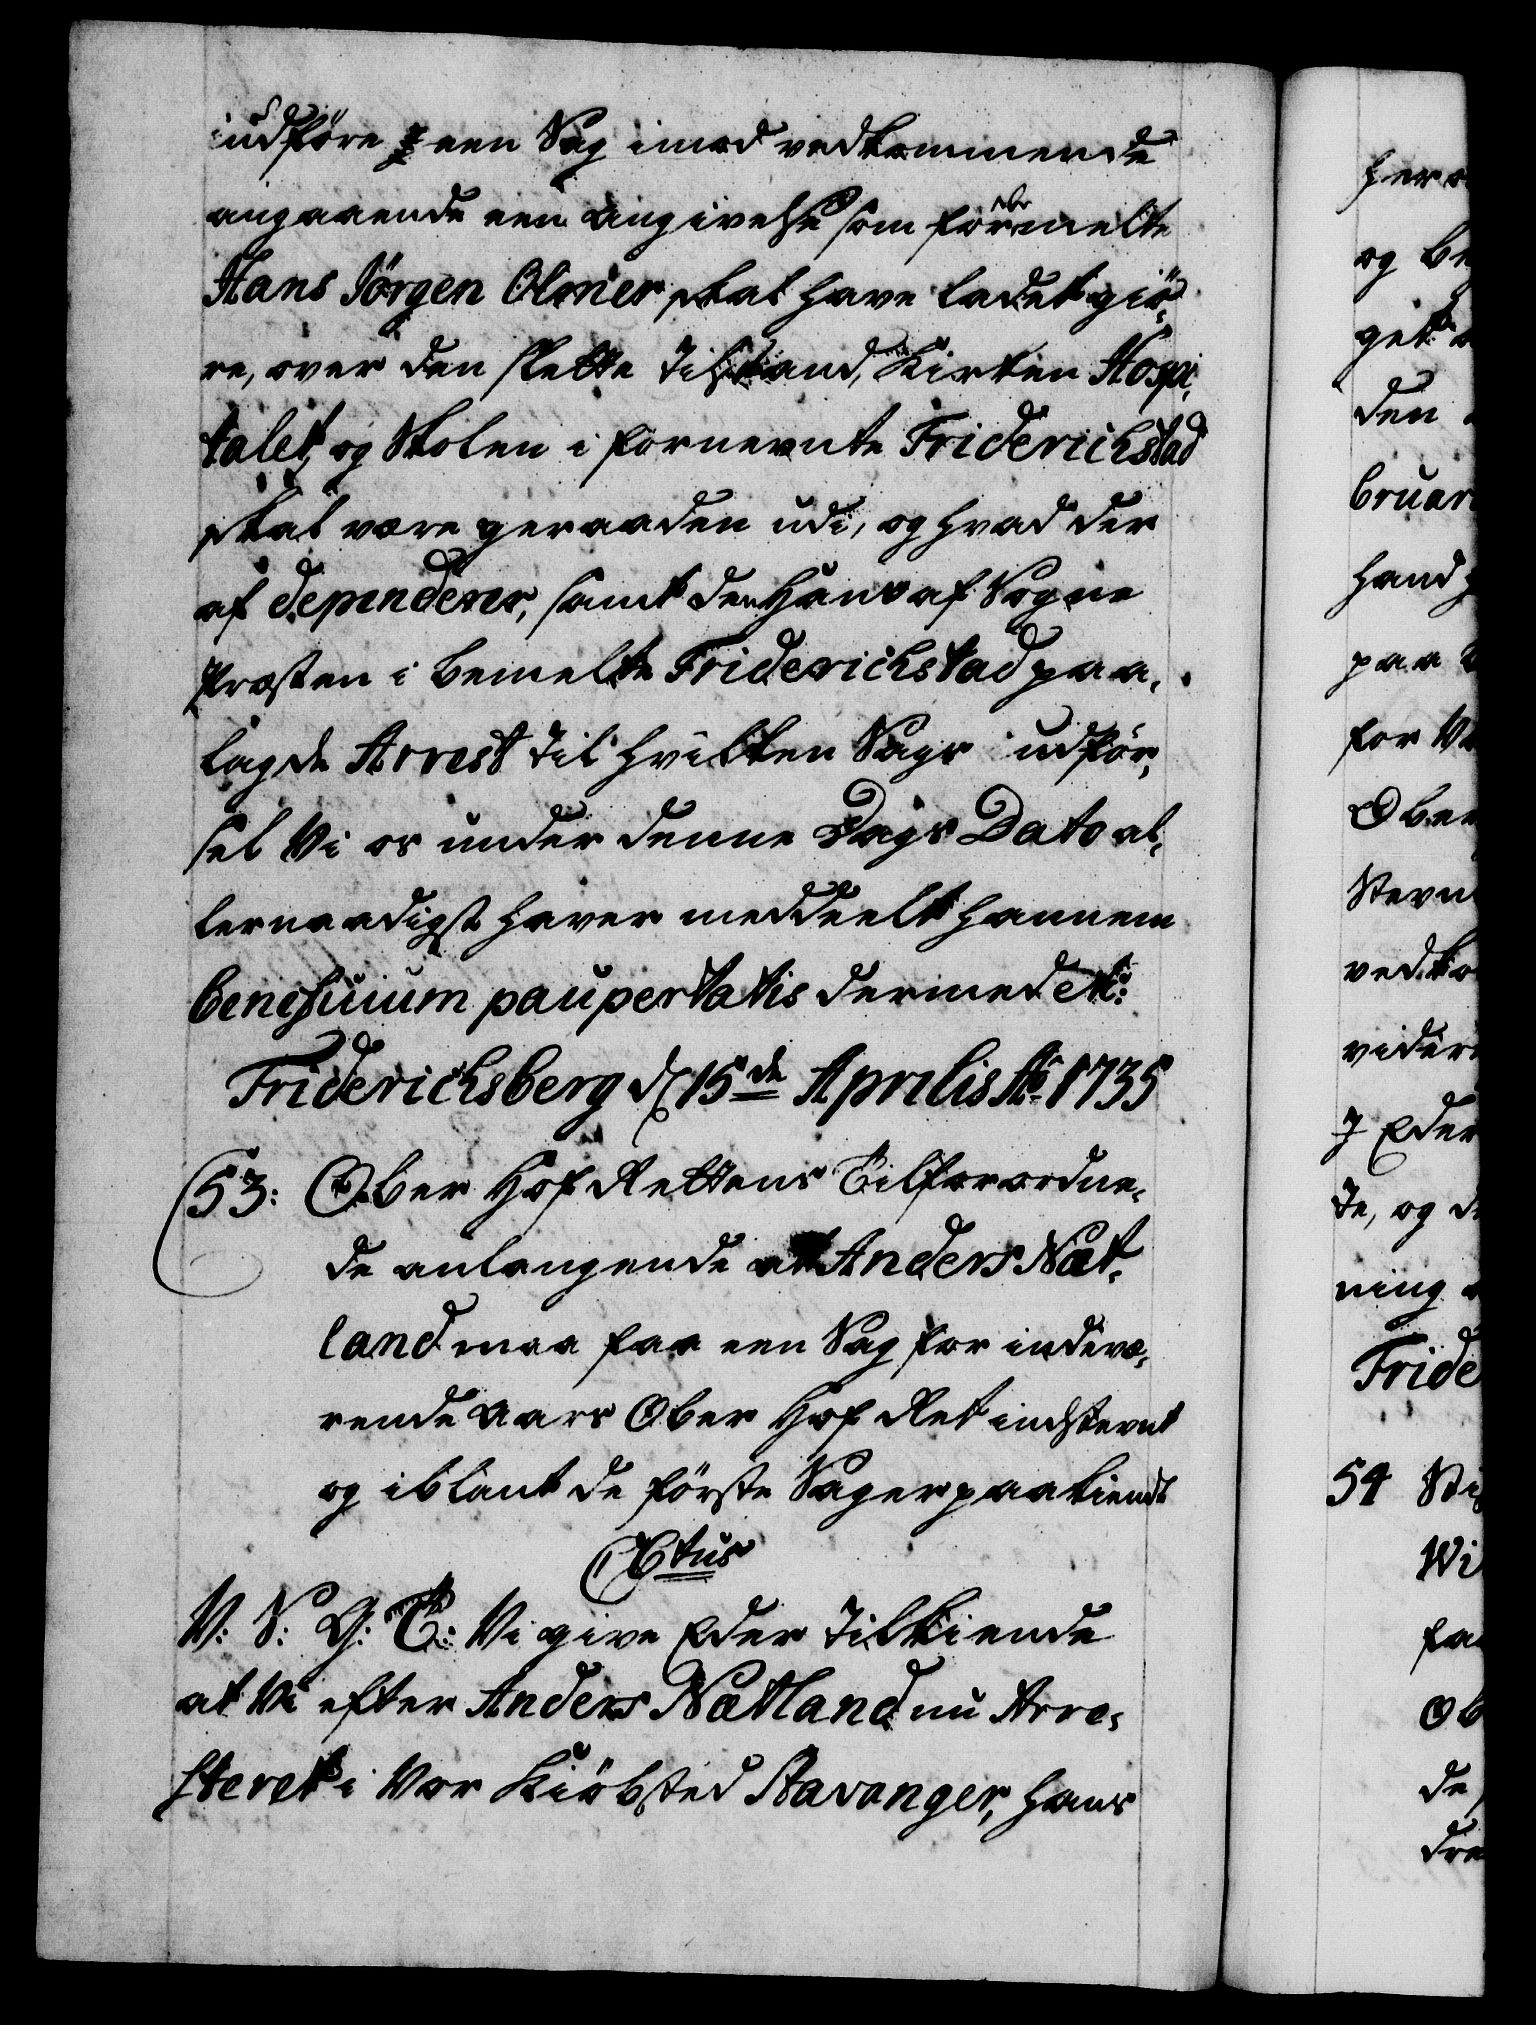 udføre een Sag imod vedkommende
angaaende een angivelse som formelte
Hans Jørgen Olmer skal have ladet giö-
re, over den slette Tilstand, Kirken Hospi-
talet, og Skolen i fornevnte Friderichstad
skal være geraaden udi, og hvad der
af dependerer, samt den Ham af Sogne
Præsten i bemelte Friderichstad paa-
lagde Arrest til hvilken Sags udför-
sel Vi os under denne Dags Dato al-
lernaadigst haver meddeelt hannem
beneficium paupertatis dermed etc:
Friderichsberg d 15de Aprilis Ao 1735
53: Ober Hof Rettens Tilforordne-
de anlangende at Anders Næt-
land maa faa een Sag for indevæ-
rende Aars Ober Hof Ret indstevnt
og iblant de förste Sager paakiendt
C6tus
V: S: G: T: Vi give Eder tilkiende
at Vi efter Anders Nætland nu Arre-
steret i Vor Kiöbsted Stavanger, hans
her
og be
get
den
bruar
hand
paa
for
Ober
Stevn
vedko
videre
Eder
te, og d
ning
Fride
54 Sti
Wi
faa
Ob
de
dre